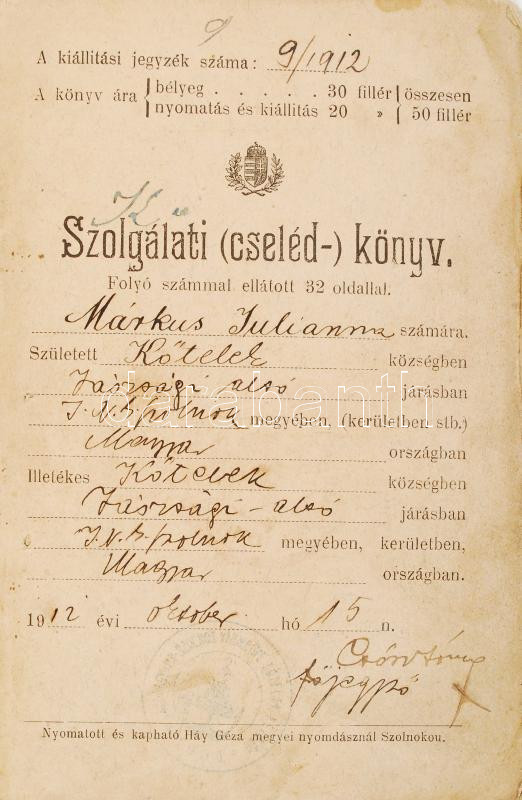 9
A kiállitási jegyzék száma: 9/1912
A könyv ára { bélyeg . . . . . 30 fillér } összesen
nyomatás és kiállitás 20 » } 50 fillér
Szolgálati (cseléd-) könyv.
Folyó számmal ellátott 32 oldallal.
Márkus Julianna számára.
Született Kőtelek községben
Jászsági alsó járásban
J. N. k. szolnok megyében, (kerületben stb.)
Magyar országban
Illetékes Kőtelek községben
Jászsági-alsó járásban
J. N. k. szolnok megyében, kerületben,
Magyar országban.
1912 évi oktober hó 15 n.
főjegyző
Nyomatott és kapható Háy Géza megyei nyomdásznál Szolnokou.
darabanth